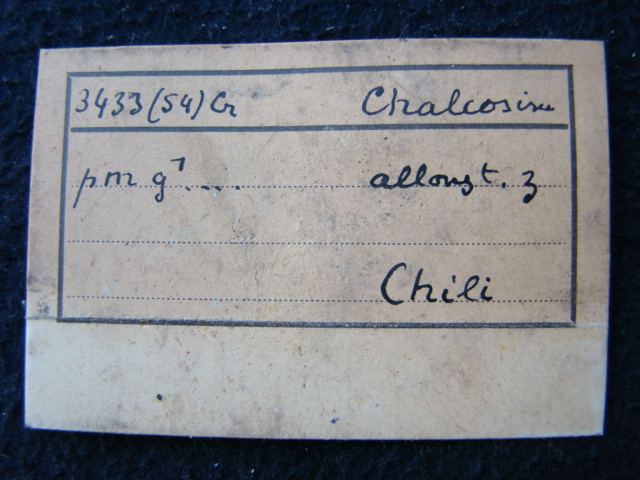 3433(54)Cr Chalcosine
pm g¹.... allongt. z
Chili